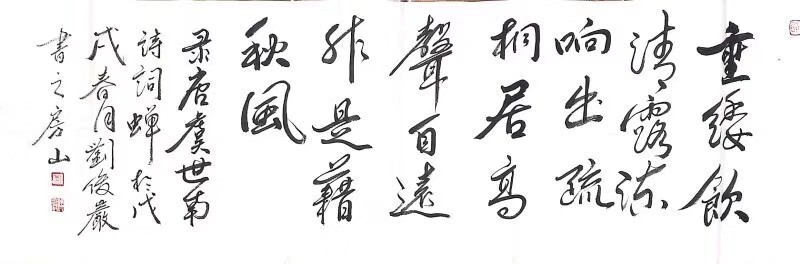 垂緌飲
清露流
响出疏
桐居高
聲自遠
非是藉
秋風
录唐虞世南
詩詞蝉於戊
戌春月劉俊嚴
書之房山